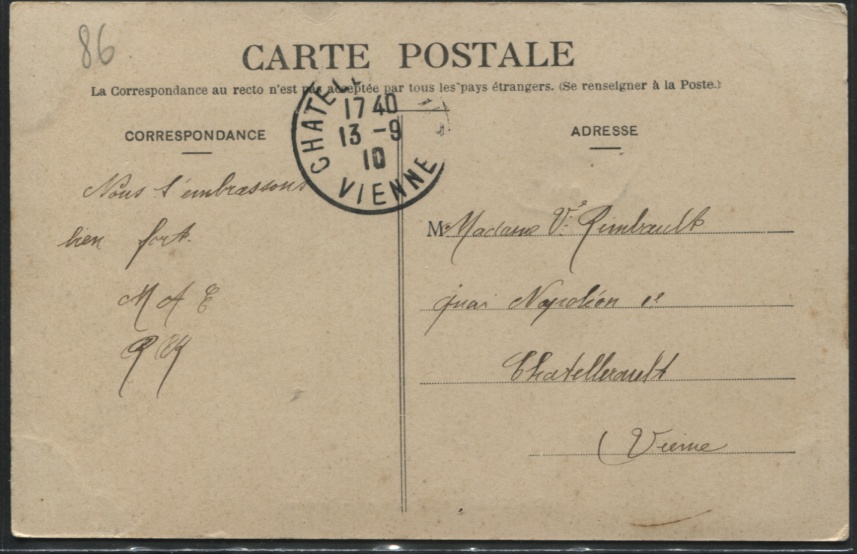 86
CARTE POSTALE
La Correspondance au recto n'est pas acceptée par tous les pays étrangers. (Se renseigner à la Poste.)
CORRESPONDANCE
Nous t'embrassons
bien fort.
M A E
CHATELL
17 40
13 - 9
10
VIENNE
ADRESSE
M Madame Ve Rimbault
quai Napoléon 1er
Chatellerault
(Vienne